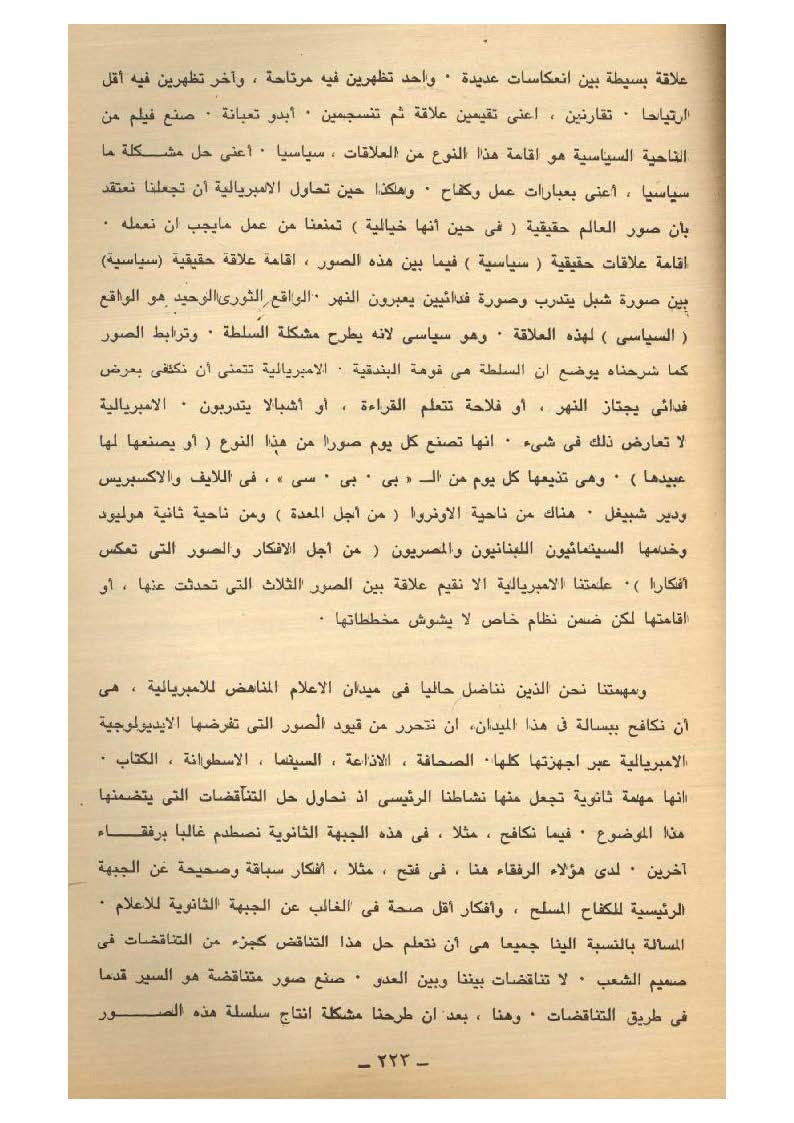 علاقة بسيطة بين انعكاسات عديدة ٠ واحد تظهرين فيه مرتاحة ، وآخر تظهرين فيه أقل
ارتياحا ٠ تقارنين ، اعنى تقيمين علاقة ثم تنسجمين ٠ أبدو تعبانة ٠ صنع فيلم من
الناحية السياسية هو اقامة هذا النوع من العلاقات ، سياسيا ٠ أعنى حل مشكلة ما
سياسيا ، أعنى بعبارات عمل وكفاح ٠ وهكذا حين تحاول الامبريالية أن تجعلنا نعتقد
بأن صور العالم حقيقية ( فى حين أنها خيالية ) تمنعنا من عمل مايجب ان نعمله ٠
اقامة علاقات حقيقية ( سياسية ) فيما بين هذه الصور ، اقامة علاقة حقيقية (سياسية)
بين صورة شبل يتدرب وصورة فدائيين يعبرون النهر ٠ الواقع الثورى الوحيد هو الواقع
( السياسى ) لهذه العلاقة ٠ وهو سياسى لانه يطرح مشكلة السلطة ٠ وترابط الصور
كما شرحناه يوضع ان السلطة هى فوهة البندقية ٠ الامبريالية تتمنى أن نكتفى بعرض
فدائى يجتاز النهر ، أو فلاحة تتعلم القراءة ، أو أشبالا يتدربون ٠ الامبريالية
لا تعارض ذلك فى شىء ٠ انها تصنع كل يوم صورا من هذا النوع ( أو يصنعها لها
عبيدها ) ٠ وهى تذيعها كل يوم من الـ « بى ٠ بى ٠ سى » ، فى اللايف والاكسبريس
ودير شبيغل ٠ هناك من ناحية الاونروا ( من أجل المعدة ) ومن ناحية ثانية هوليود
وخدمها السينمائيون اللبنانيون والمصريون ( من أجل الافكار والصور التى تعكس
أفكارا ) ٠ علمتنا الامبريالية الا نقيم علاقة بين الصور الثلاث التى تحدثت عنها ، أو
اقامتها لكن ضمن نظام خاص لا يشوش مخططاتها ٠
ومهمتنا نحن الذين نناضل حاليا فى ميدان الاعلام المناهض للامبريالية ، هى
أن نكافح ببسالة فى هذا الميدان، ان نتحرر من قيود الصور التى تفرضها الايديولوجية
الامبريالية عبر اجهزتها كلها٠ الصحافة ، الاذاعة ، السينما ، الاسطوانة ، الكتاب ٠
انها مهمة ثانوية تجعل منها نشاطنا الرئيسى اذ نحاول حل التناقضات التى يتضمنها
هذا الموضوع ٠ فيما نكافح ، مثلا ، فى هذه الجبهة الثانوية نصطدم غالبا برفقاء
آخرين ٠ لدى هؤلاء الرفقاء هنا ، فى فتح ، مثلا ، أفكار سباقة وصحيحة عن الجبهة
الرئيسية للكفاح المسلح ، وأفكار أقل صحة فى الغالب عن الجبهة الثانوية للاعلام ٠
المسالة بالنسبة الينا جميعا هى أن نتعلم حل هذا التناقض كجزء من التناقضات فى
صميم الشعب ٠ لا تناقضات بيننا وبين العدو ٠ صنع صور متناقضة هو السير قدما
فى طريق التناقضات ٠ وهنا ، بعد ان طرحنا مشكلة انتاج سلسلة هذه الصور
ـ ٢٢٣ ـ